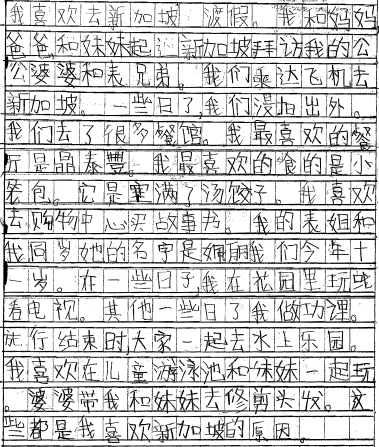 我喜欢去新加坡 渡假。我和妈妈
爸爸和妹妹起 新加坡拜访我的公
公婆婆和表兄弟。我们乘达飞机去
新加坡。一些日子,我们漫泊出外。
我们去了很多餐馆。我最喜欢的餐
厅是晶泰豐。我最喜欢的食的是小
笼包。它是塞满了汤饺子。我喜欢
去购物中心买故事书。我的表姐和
我同岁她的名字是婀丽我们今年十
一岁。在一些日子,我在花园里玩或
看电视。其他一些日子我做功课。
旅行结束时,大家一起去水上乐园。
我喜欢在儿童游泳池和妹妹一起玩
。婆婆带我和妹妹去修剪头发。这
些都是我喜欢新加坡的原因。